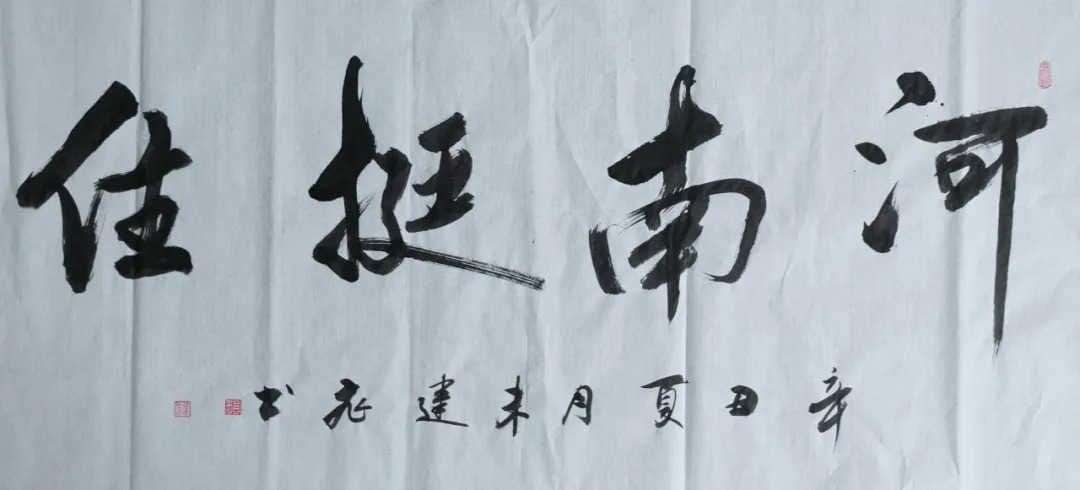 河南挺住
辛丑夏月未建庄书